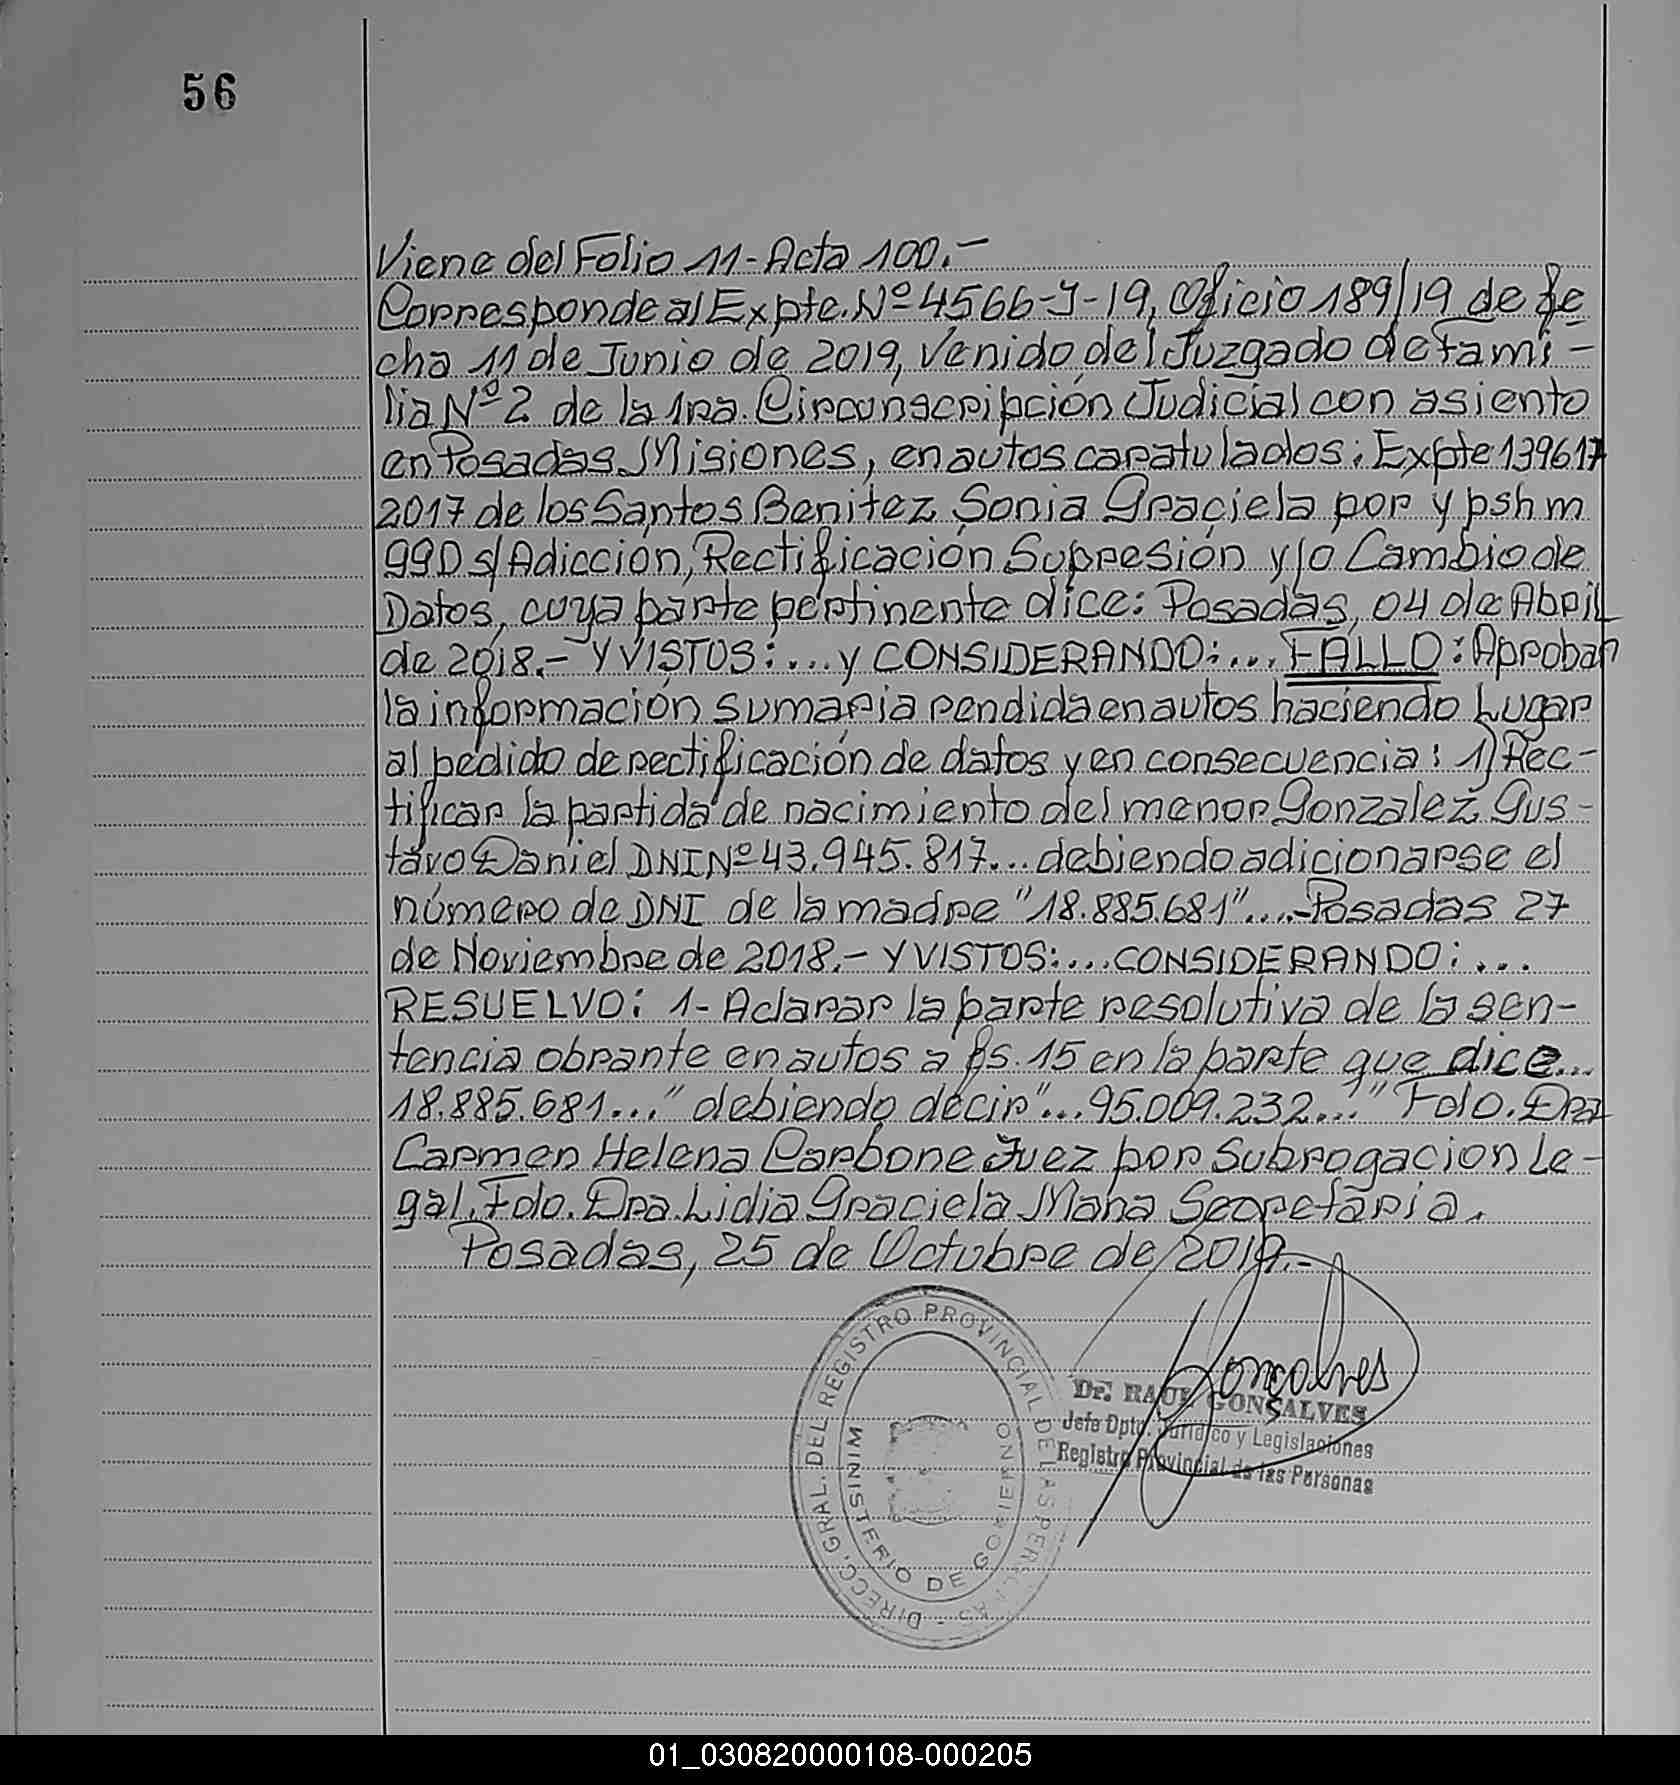 56
Viene del Folio 11-Acta 100.-
Corresponde al Expte. Nº 4566-J-19, Oficio 189/19 de fe
cha 11 de Junio de 2019, Venido del Juzgado de Fami-
lia Nº 2 de la 1ra. Circunscripción Judicial con asiento
en Posadas Misiones, en autos caratulados: Expte 139617
2017 de los Santos Benitez Sonia Graciela por y pshm
GGD s/Adicción, Rectificación Supresión y/o Cambio de
Datos, cuya parte pertinente dice: Posadas, 04 de Abril
de 2018.- Y VISTOS:... y CONSIDERANDO:... FALLO: Aprobar
la información sumaria rendida en autos haciendo Lugar
al pedido de rectificación de datos y en consecuencia: 1) Rec-
tificar la partida de nacimiento del menor Gonzalez Gus-
tavo Daniel DNI Nº 43.945.817... debiendo adicionarse el
número de DNI de la madre "18.885.681"....-Posadas 27
de Noviembre de 2018.- Y VISTOS:... CONSIDERANDO:...
RESUELVO: 1- Aclarar la parte resolutiva de la sen-
tencia obrante en autos a fs. 15 en la parte que dice...
18.885.681..." debiendo decir "...95.009.232..." Fdo. Dra
Carmen Helena Carbone Juez por Subrogacion Le-
gal. Fdo. Dra. Lidia Graciela Maha Secretaria.
Posadas, 25 de Octubre de 2019.-
DIRECC. GRAL. DEL REGISTRO PROVINCIAL DE LAS PERSONAS
MINISTERIO DE GOBIERNO
Gonçalves
Dr. RAUL GONSALVES
Jefe Dpto. Jurídico y Legislaciones
Registro Provincial de las Personas
01_030820000108-000205